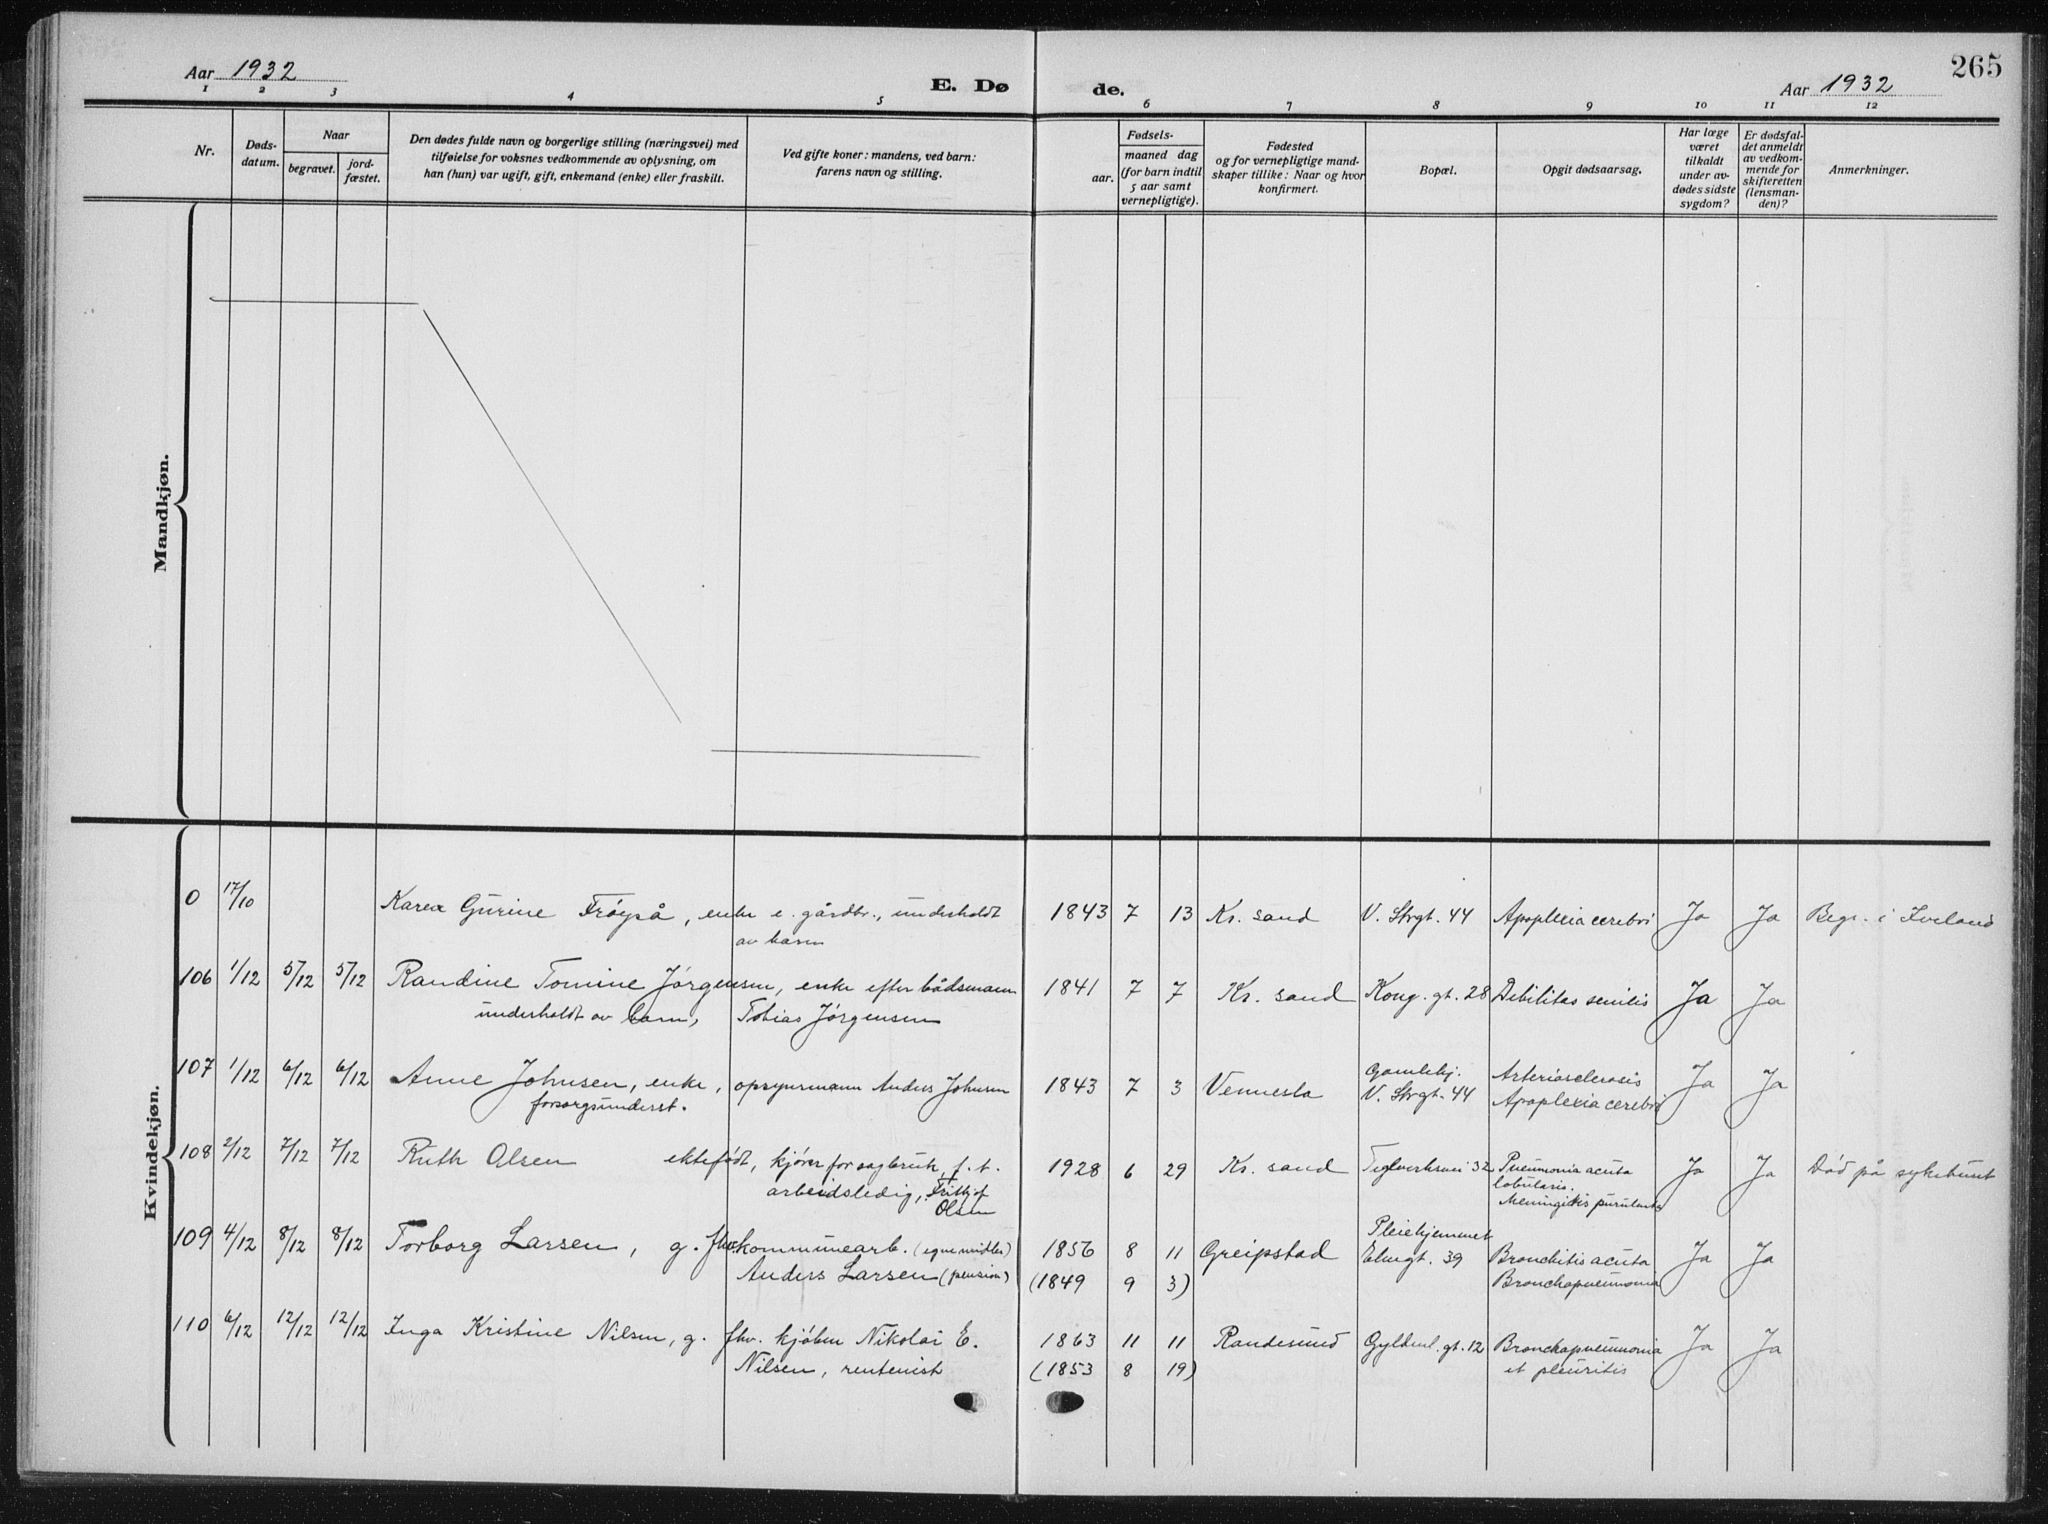 265
Aar 1932
E. Dø
de.
Aar 1932
1 2 3 4 5 6 7 8 9 10 11 12
Nr.
Døds-
datum.
Naar
begravet.
jord-
fæstet.
Den dødes fulde navn og borgerlige stilling (næringsvei) med
tilføielse for voksnes vedkommende av oplysning, om
han (hun) var ugift, gift, enkemand (enke) eller fraskilt.
Ved gifte koner: mandens, ved barn:
farens navn og stilling.
Fødsels-
aar.
maaned dag
(for barn indtil
5 aar samt
vernepligtige).
Fødested
og for vernepligtige mand-
skaper tillike: Naar og hvor
konfirmert.
Bopæl.
Opgit dødsaarsag.
Har læge
været
tilkaldt
under av-
dødes sidste
sygdom?
Er dødsfal-
det anmeldt
av vedkom-
mende for
skifteretten
(lensman-
den)?
Anmerkninger.
Mandkjøn.
Kvindekjøn.
0 17/10 Karen Gurine Frøyså, enke e. gårdbr., underholdt 1843 7 13 Kr. sand V. Strgt. 44 Apoplexia cerebri Ja Ja Begr. i Iveland
av barn
106 1/12 5/12 5/12 Randine Tomine Jørgensen, enke efter bådsmann 1841 7 7 Kr. sand Kong. gt. 28 Debilitas senilis Ja Ja
underholdt av barn, Tobias Jørgensen
107 1/12 6/12 6/12 Anne Johnsen, enke, opsynsmann Anders Johnsen 1843 7 3 Vennesla Gamlehj. Arteriosclerosis Ja Ja
forsorgsunderst. V. Strgt. 44 Apoplexia cerebri
108 2/12 7/12 7/12 Ruth Olsen ektefødt, kjører for sagbruk, f. t. 1928 6 29 Kr. sand Teglverksvei 32 Pneumonia acuta Ja Ja Død på sykehuset
arbeidsledig, Fritjof lobularis.
Olsen Meningitis purulenta
109 4/12 8/12 8/12 Torborg Larsen, g. fhv kommunearb. (egne midler) 1856 8 11 Greipstad Pleiehjemmet
Elvegt. 39 Bronchitis acuta Ja Ja
Anders Larsen (pension) (1849 9 3) Bronchopneumonia
110 6/12 12/12 12/12 Inga Kristine Nilsen, g. fhv. kjøbm Nikolai E. 1863 11 11 Randesund Gyldenl. gt. 12 Bronchopneumonia Ja Ja
Nilsen, rentenist (1853 8 19) et pleuritis